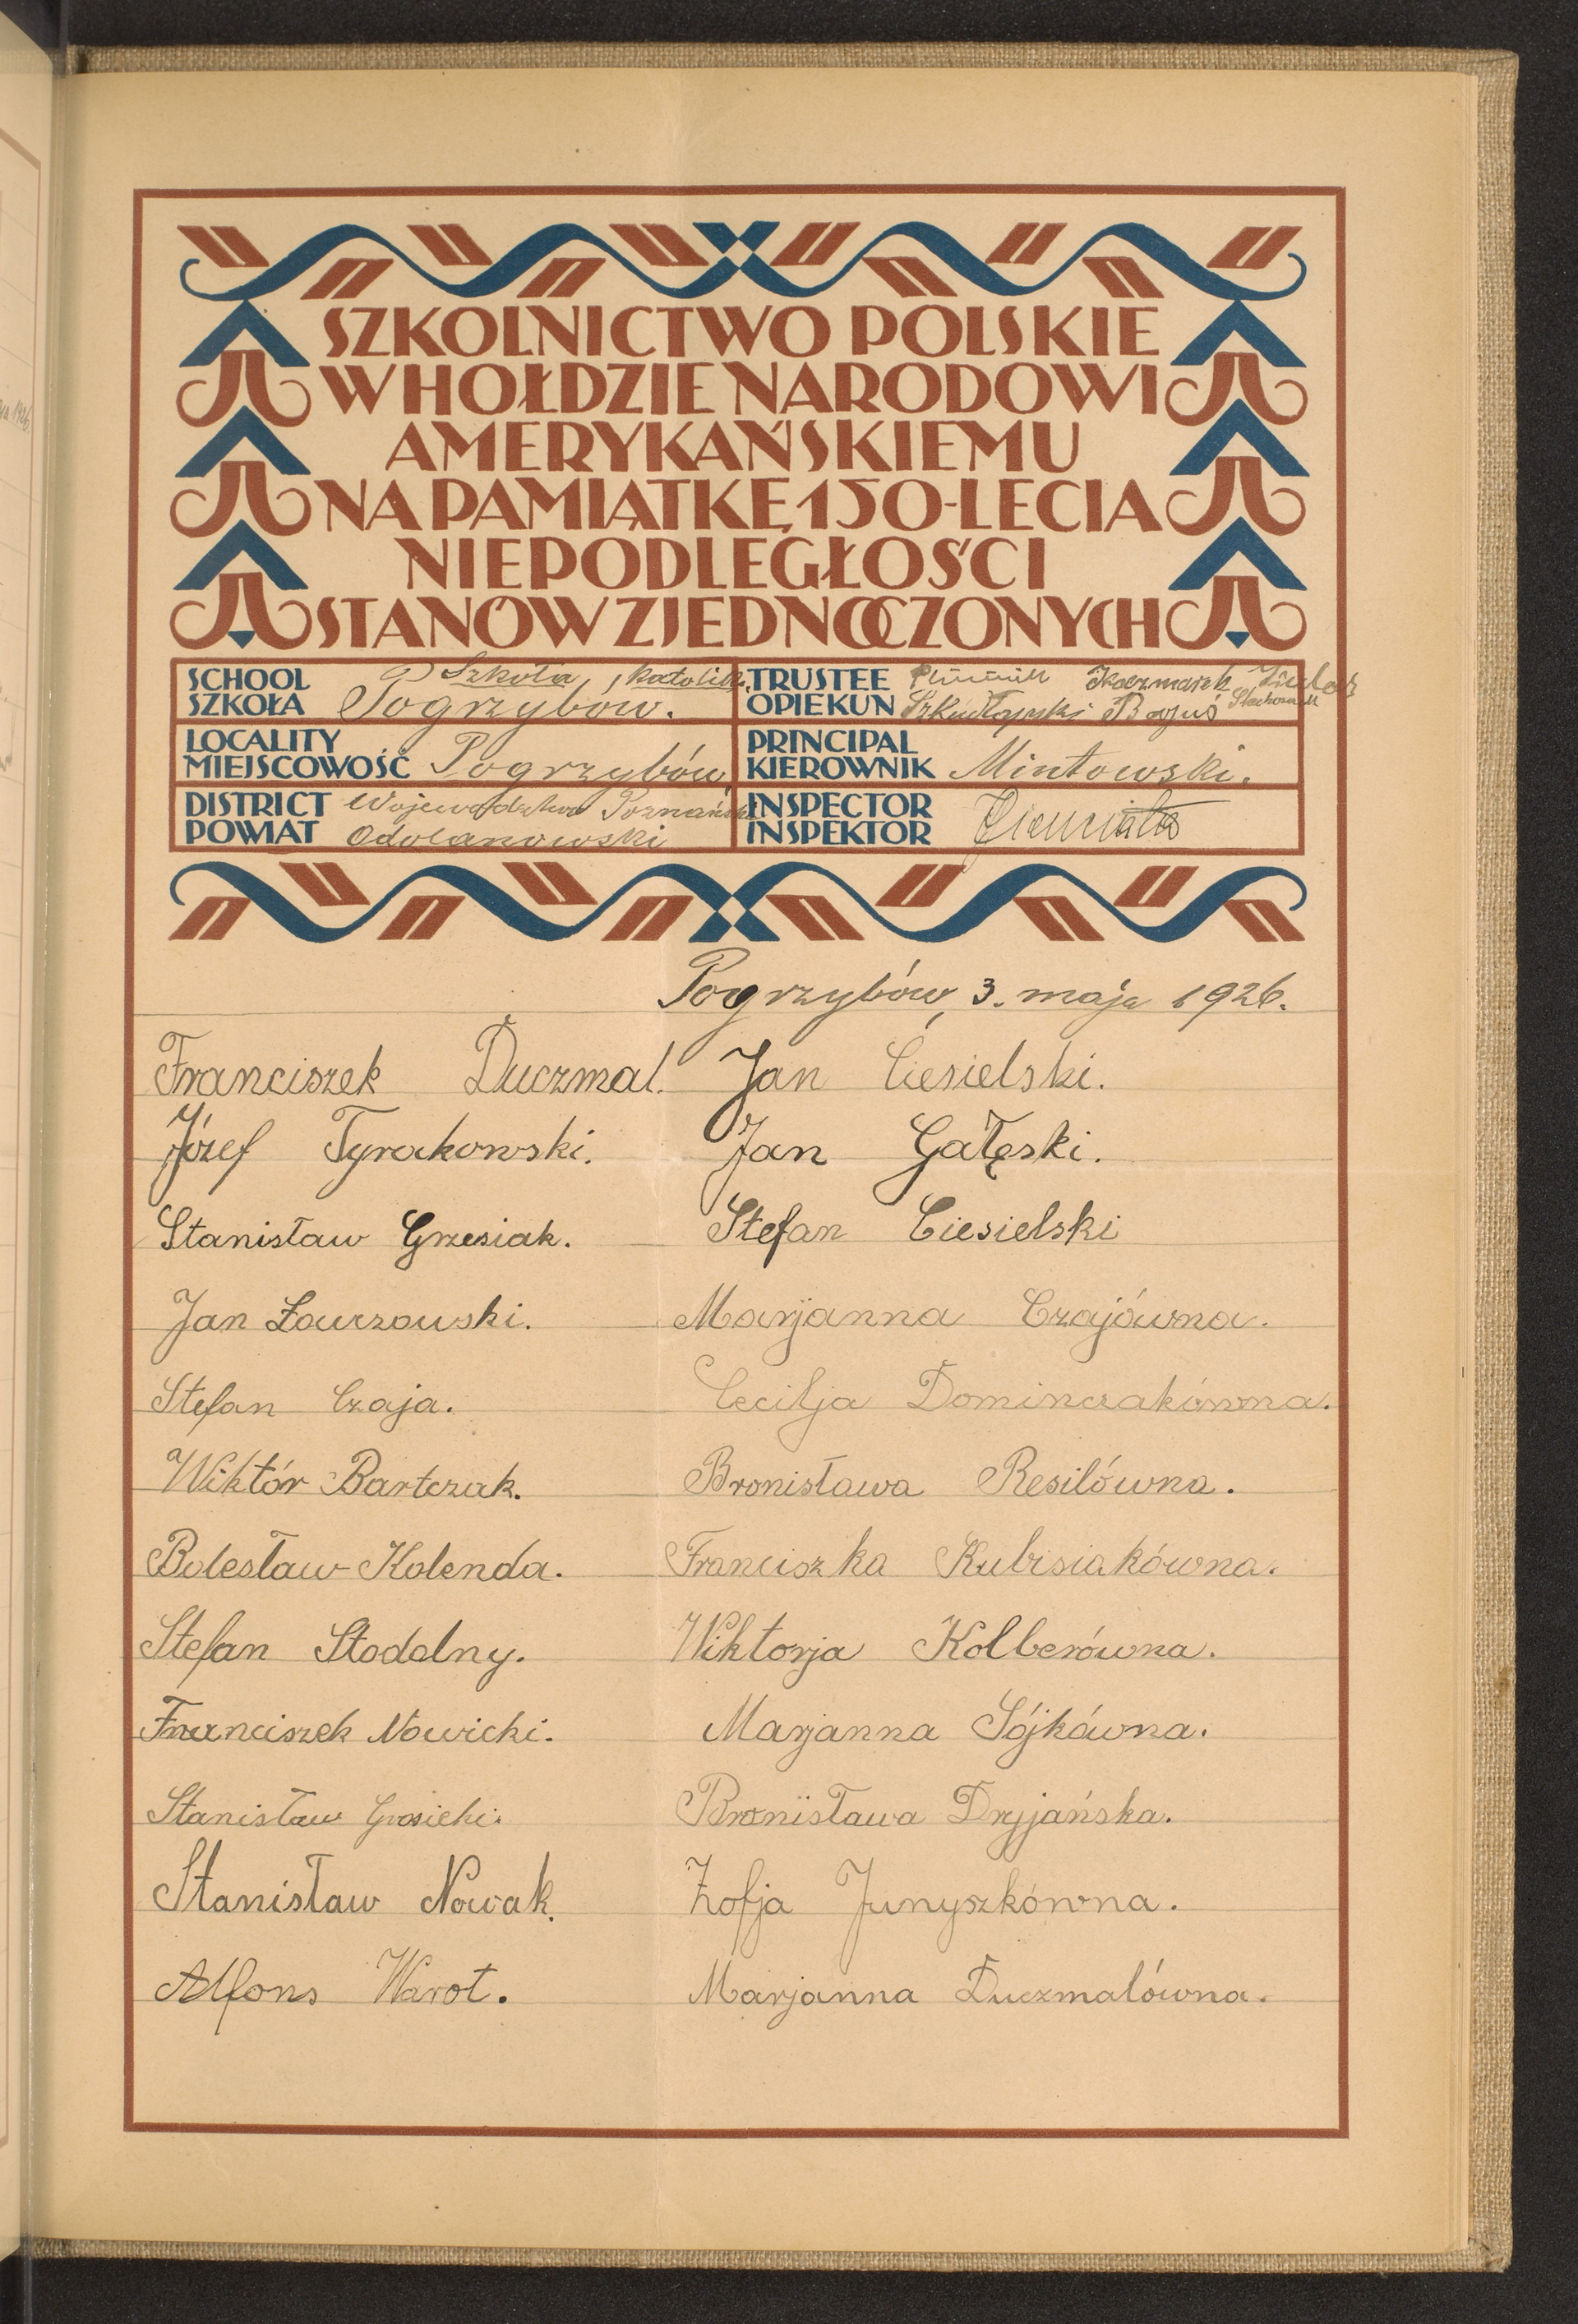 SZKOLNICTWO POLSKIE
W HOŁDZIE NARODOWI
AMERYKAŃSKIEMU
NA PAMIĄTKĘ 150-LECIA
NIEPODLEGŁOŚCI
STANÓW ZJEDNOCZONYCH
SCHOOL
SZKOŁA
Szkoła katolik.
Pogrzybów.
TRUSTEE
OPIEKUN
Kaczmarek
LOCALITY
MIEJSCOWOŚĆ
Pogrzybów
PRINCIPAL
KIEROWNIK
Mintowski.
DISTRICT
POWIAT
Województwo Poznańskie
Odolanowski
INSPECTOR
INSPEKTOR
Pogrzybów, 3. maja 1926.
Franciszek Duczmal. Jan Ciesielski.
Józef Tyrakowski. Jan Gałęski.
Stanisław Grzesiak. Stefan Ciesielski
Jan Ławzowski. Marjanna Czajówna.
Stefan Czaja. Cecilja Dominczakówna.
Wiktór Bartczak. Bronisława Resilówna.
Bolesław Kolenda. Franciszka Kubisiakówna.
Stefan Stodolny. Wiktorja Kolberówna.
Franciszek Nowicki. Marjanna Sójkówna.
Stanisław Grosicki. Bronisława Dryjańska.
Stanisław Nowak. Zofja Junyszkówna.
Alfons Warot. Marjanna Duczmalówna.